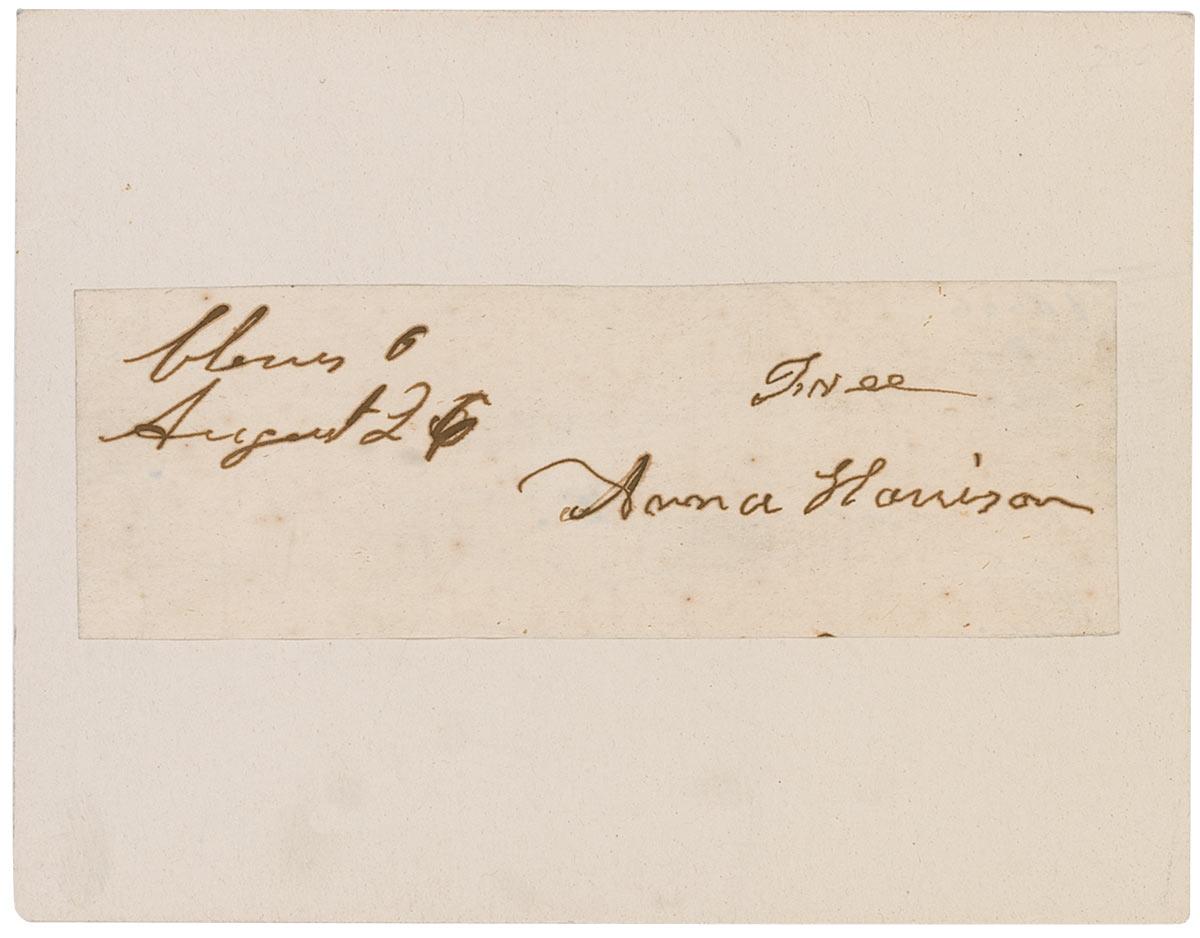 Cleves O
August 26
Free
Anna Harrison